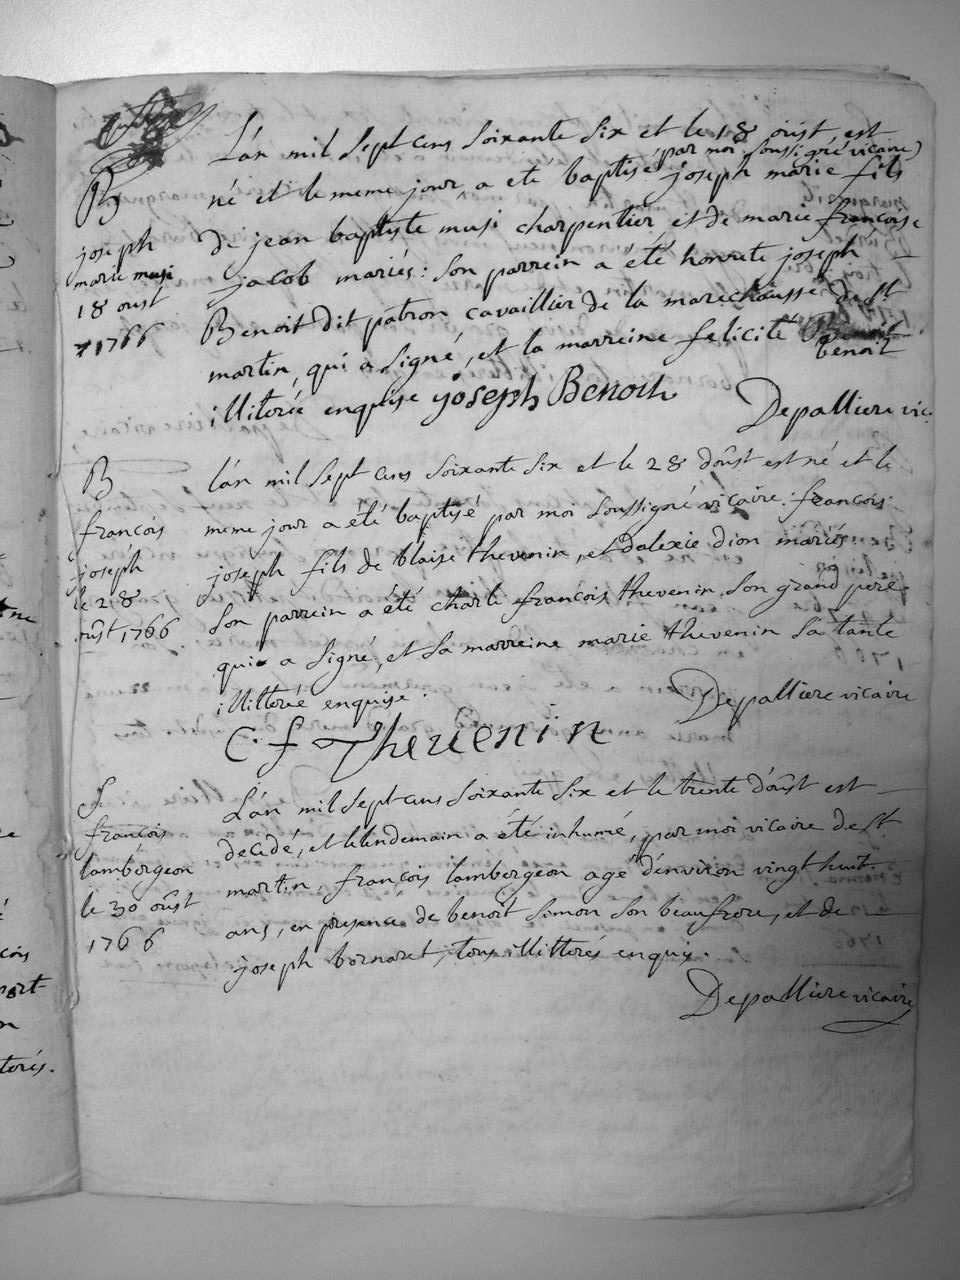 L'an mil sept cens soixante six et le 18 oust, est
né et le meme jour a eté baptisé par moi soussigné vicaire joseph marie fils
de jean baptiste musi charpentier et de marie françoise
jacob mariés : son parrein a été honnete joseph
Benoit dit patron cavaillier de la marechausse de st
martin, qui a signé, et la marreine felicité
benoit
illiterée enquise joseph Benoit
Depalliere vic.
B
joseph
marie musi
18 oust
1766
l'an mil sept cens soixante six et le 28 d'oust est né et le
meme jour a été baptisé par moi soussigné vicaire : françois
joseph fils de blaise thevenin, et d'alexie dion mariés
son parrein a été charle françois thevenin son grand pere
qui a signé, et sa marreine marie thevenin sa tante
illiterée enquise.
Depalliere vicaire
C. f Thevenin
B
françois
joseph
le 28
oust 1766
L'an mil sept cens soixante six et le trente d'oust est
decedé, et le lendemain a été inhumé, par moi vicaire de st
martin, françois lambergeon agé d'environ vingt huit
ans, en presence de benoit somon son beaufrere, et de
joseph bornaret, tous illiterés enquis.
Depalliere vicaire
S
françois
lambergeon
le 30 oust
1766